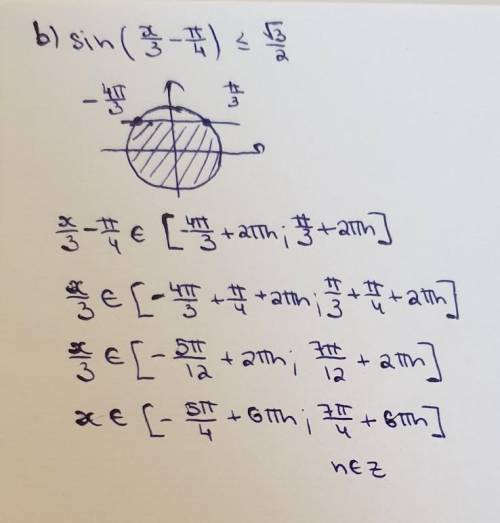 b) sin(x/3 - π/4) ≤ √3/2
-4π/3 π/3
x/3 - π/4 ∈ [-4π/3 + 2πn; π/3 + 2πn]
x/3 ∈ [-4π/3 + π/4 + 2πn; π/3 + π/4 + 2πn]
x/3 ∈ [-5π/12 + 2πn; 7π/12 + 2πn]
x ∈ [-5π/4 + 6πn; 7π/4 + 6πn]
n ∈ Z